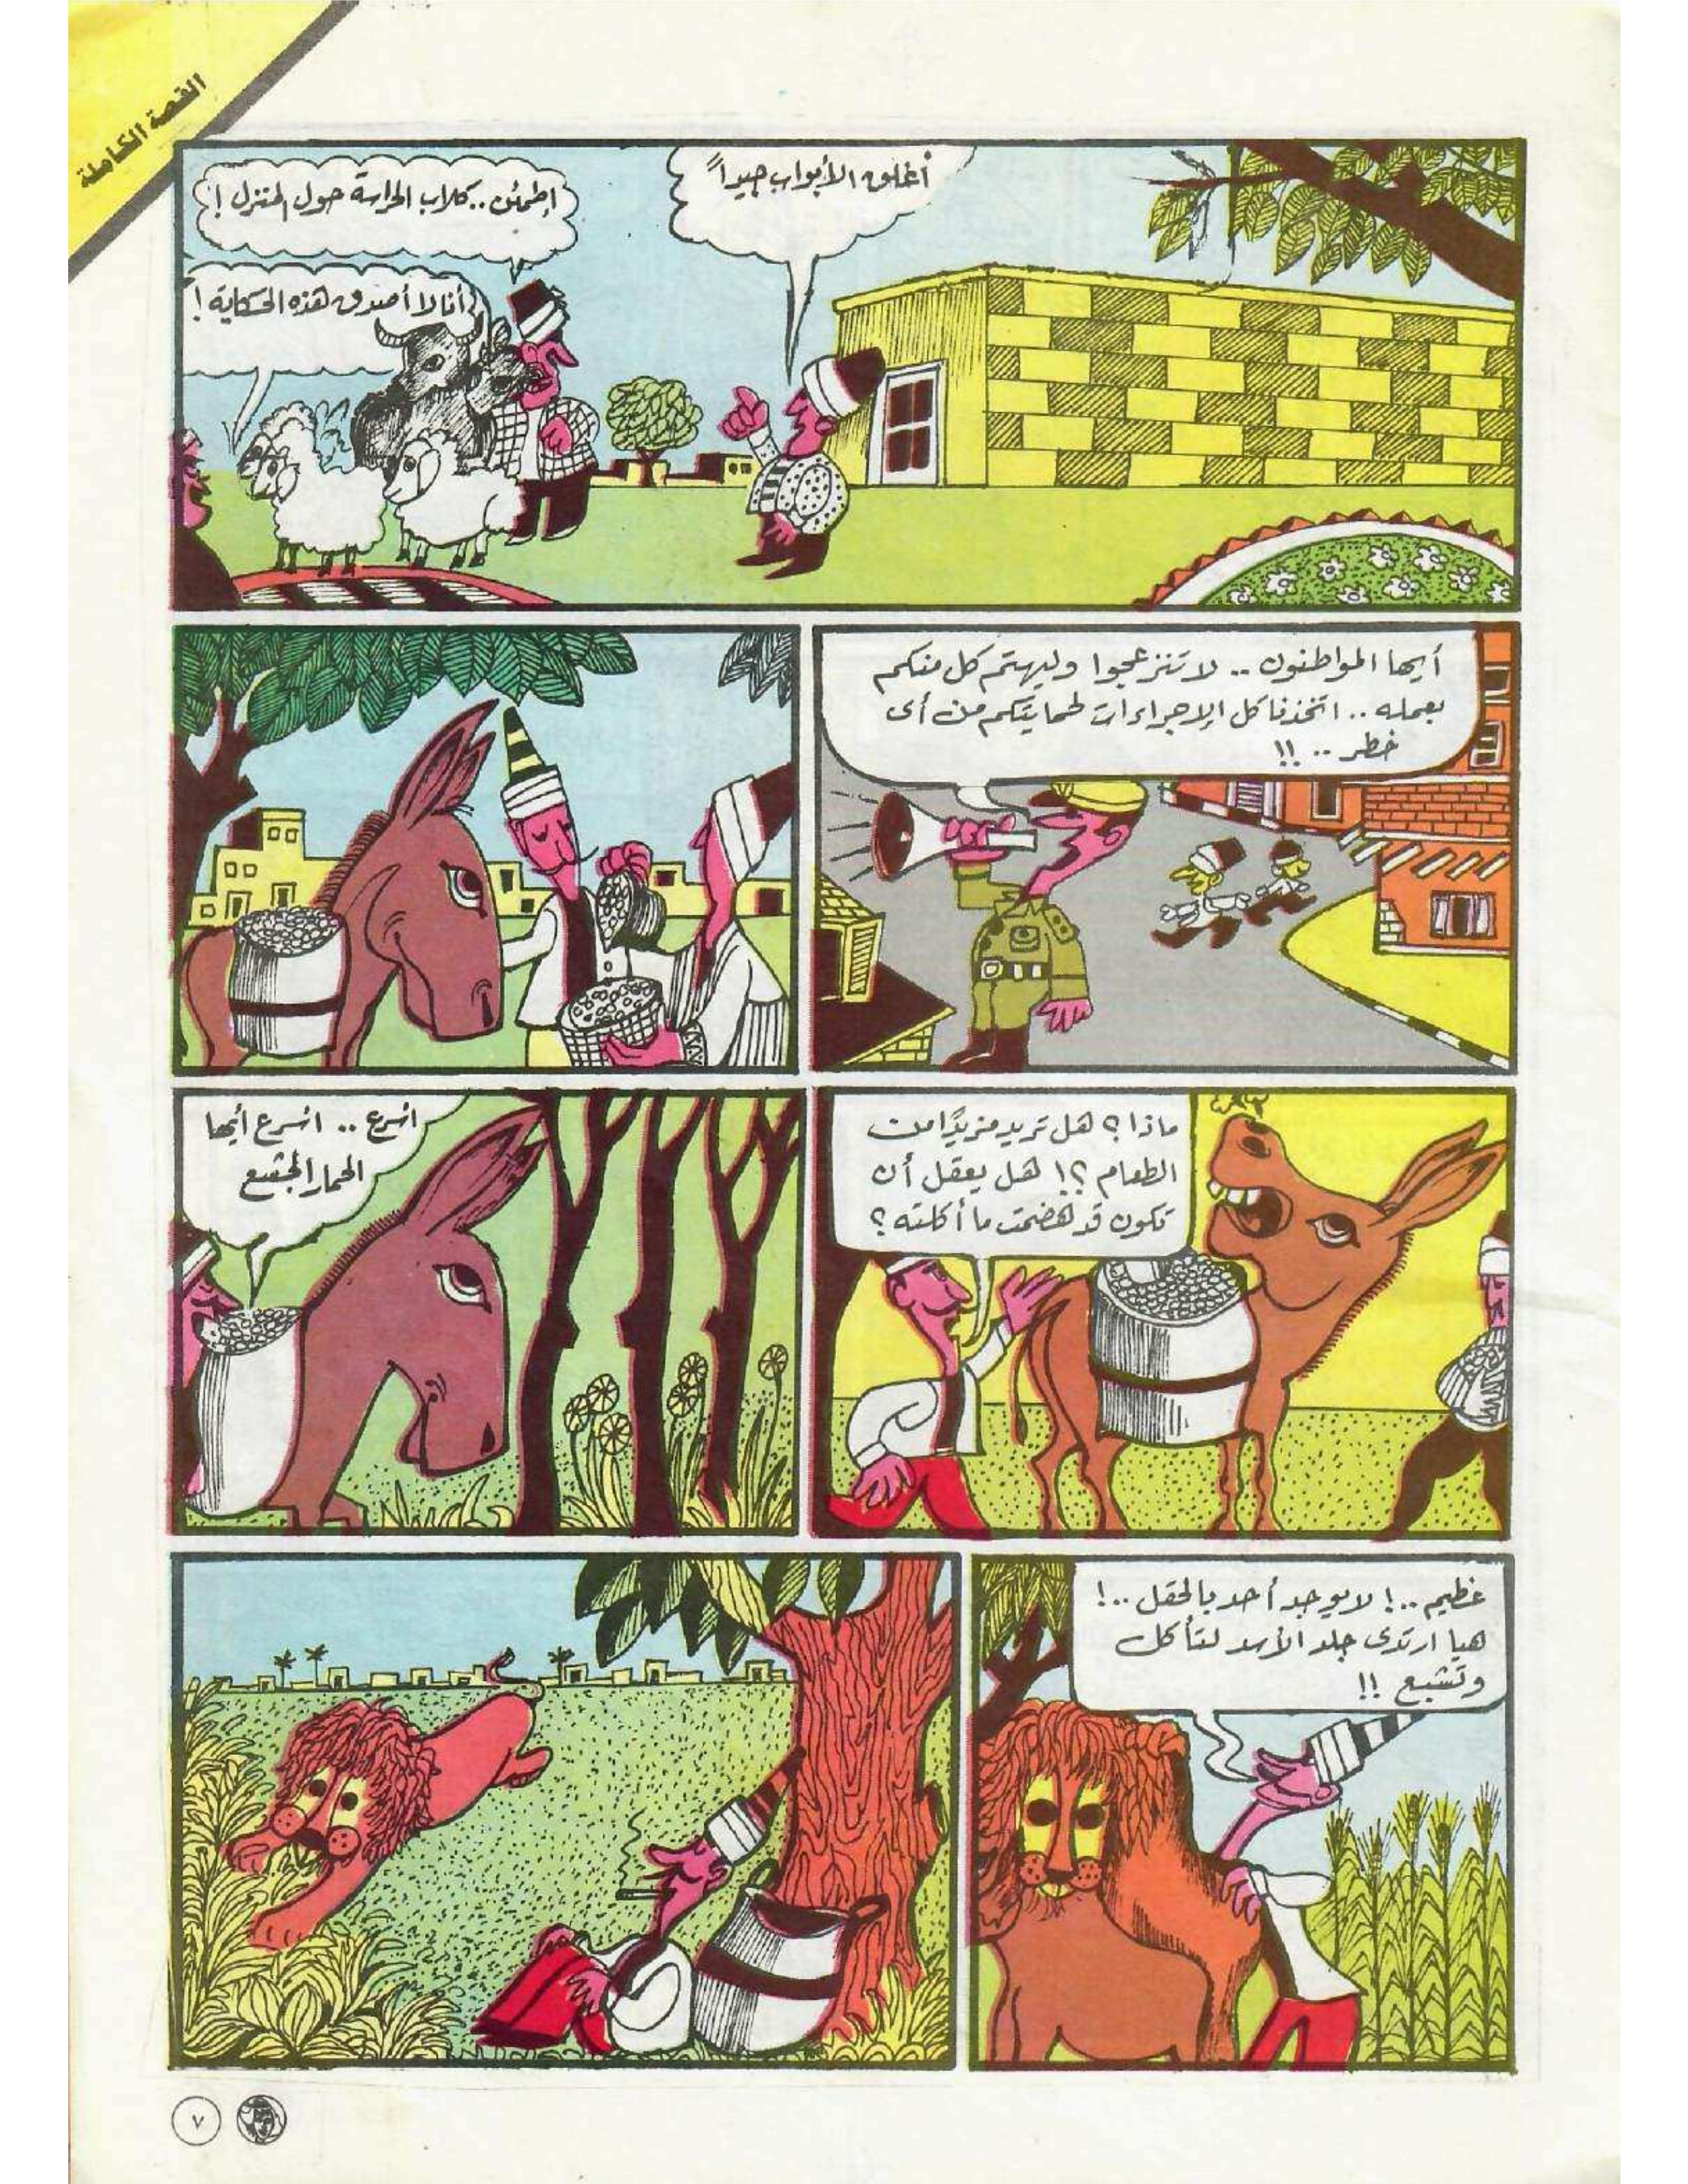 القصة الكاملة
أغلق الأبواب جيداً
إطمئن.. كلاب الحراسة حول المنزل !
أنا لا أصدق هذه الحكاية !
أيها المواطنون .. لا تنزعجوا وليهتم كل منكم
بعمله .. اتخذنا كل الإجراءات لحمايتكم من أى
خطر .. !!
ماذا ؟ هل تريد مزيدًا من
الطعام ؟! هل يعقل أن
تكون قد هضمت ما أكلته ؟
اسرع .. اسرع أيها
الحمار الجشع
عظيم ..! لا يوجد أحد بالحقل ..!
هيا ارتدى جلد الأسد لتأكل
وتشبع !!
٧